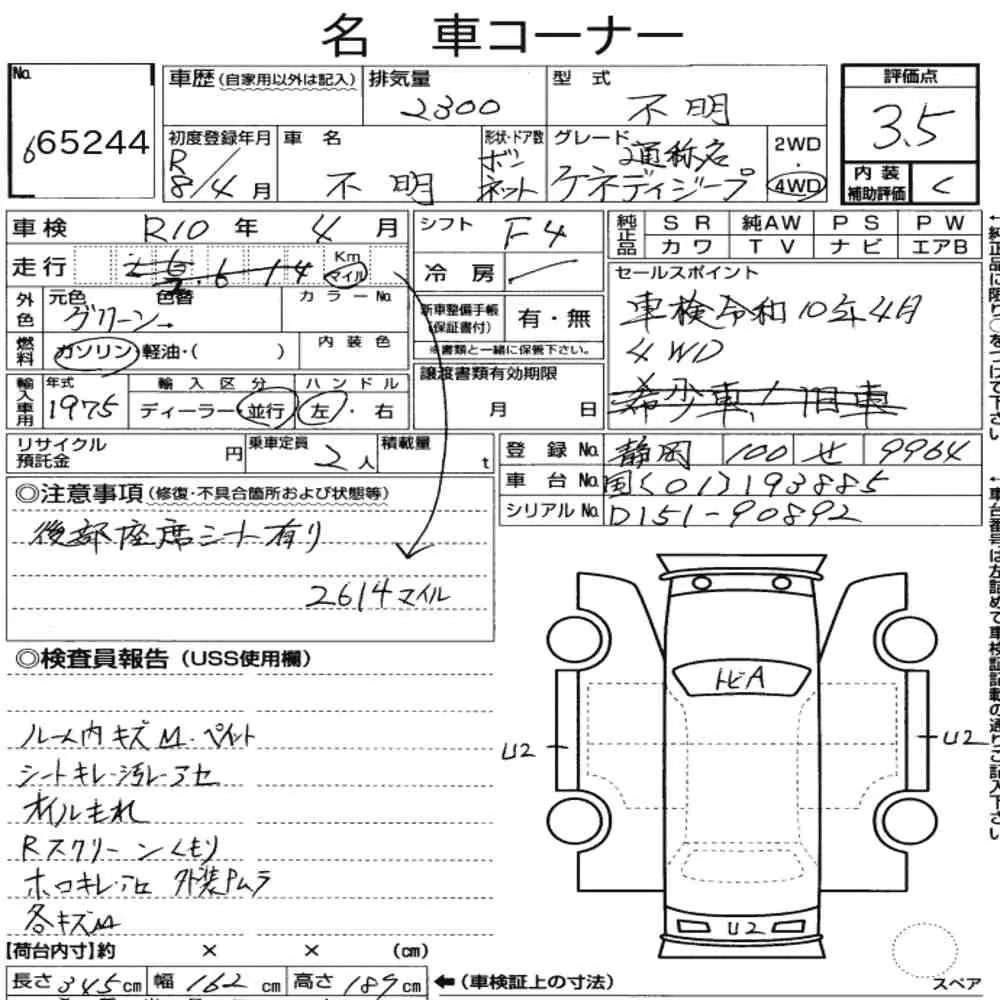 名 車コーナー
No.
665244
車歴(自家用以外は記入)
排気量
2300
型 式
不明
評価点
3.5
初度登録年月
R
8/4月
車 名
不明
形状・ドア数
ボン
ネット
グレード
通称名
ケネディジープ
2WD
・
4WD
内 装
補助評価
C
車検 R10 年 4 月
走行
6 14
Km
マイル
シフト
F4
冷 房
純正品
SR 純AW PS PW
カワ TV ナビ エアB
外色
元色 色替
グリーン
カラーNo.
燃料
ガソリン・軽油・( )
内 装 色
新車整備手帳
(保証書付)
有・無
※書類と一緒に保管下さい。
セールスポイント
車検令和10年4月
4WD
希少車!旧車
輸入車用
年式
1975
輸 入 区 分
ディーラー・並行
ハ ン ド ル
左・右
譲渡書類有効期限
月 日
リサイクル
預託金
円
乗車定員
2人
積載量
t
登 録 No. 静岡 100 せ 9964
車 台 No. 国[01]193885
シリアルNo. D151-90892
◎注意事項(修復・不具合箇所および状態等)
後部座席シート有り
2614マイル
◎検査員報告(USS使用欄)
ルーム内キズM・ペイント
シートキレ・汚レ・アセ
オイルもれ
Rスクリーンくもり
ホロキレ・アセ 外装Pムラ
各キズM
トビA
U2
U2
U2
【荷台内寸】約 × × (cm)
長さ345cm 幅162cm 高さ189cm
←(車検証上の寸法)
スペア
←純正品に限り○をつけて下さい
←車台番号は左詰めで車検証記載の通りご記入下さい